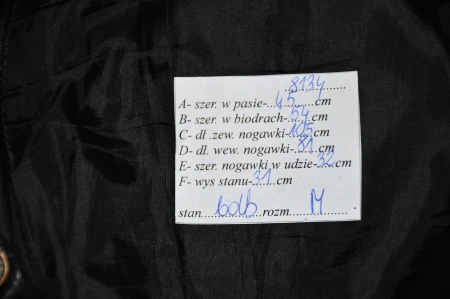 8134
A- szer. w pasie- 45 cm
B- szer. w biodrach- 54 cm
C- dł .zew. nogawki- 105 cm
D- dł. wew. nogawki- 81 cm
E- szer. nogawki w udzie- 32 cm
F- wys stanu- 31 cm
stan bdb rozm M